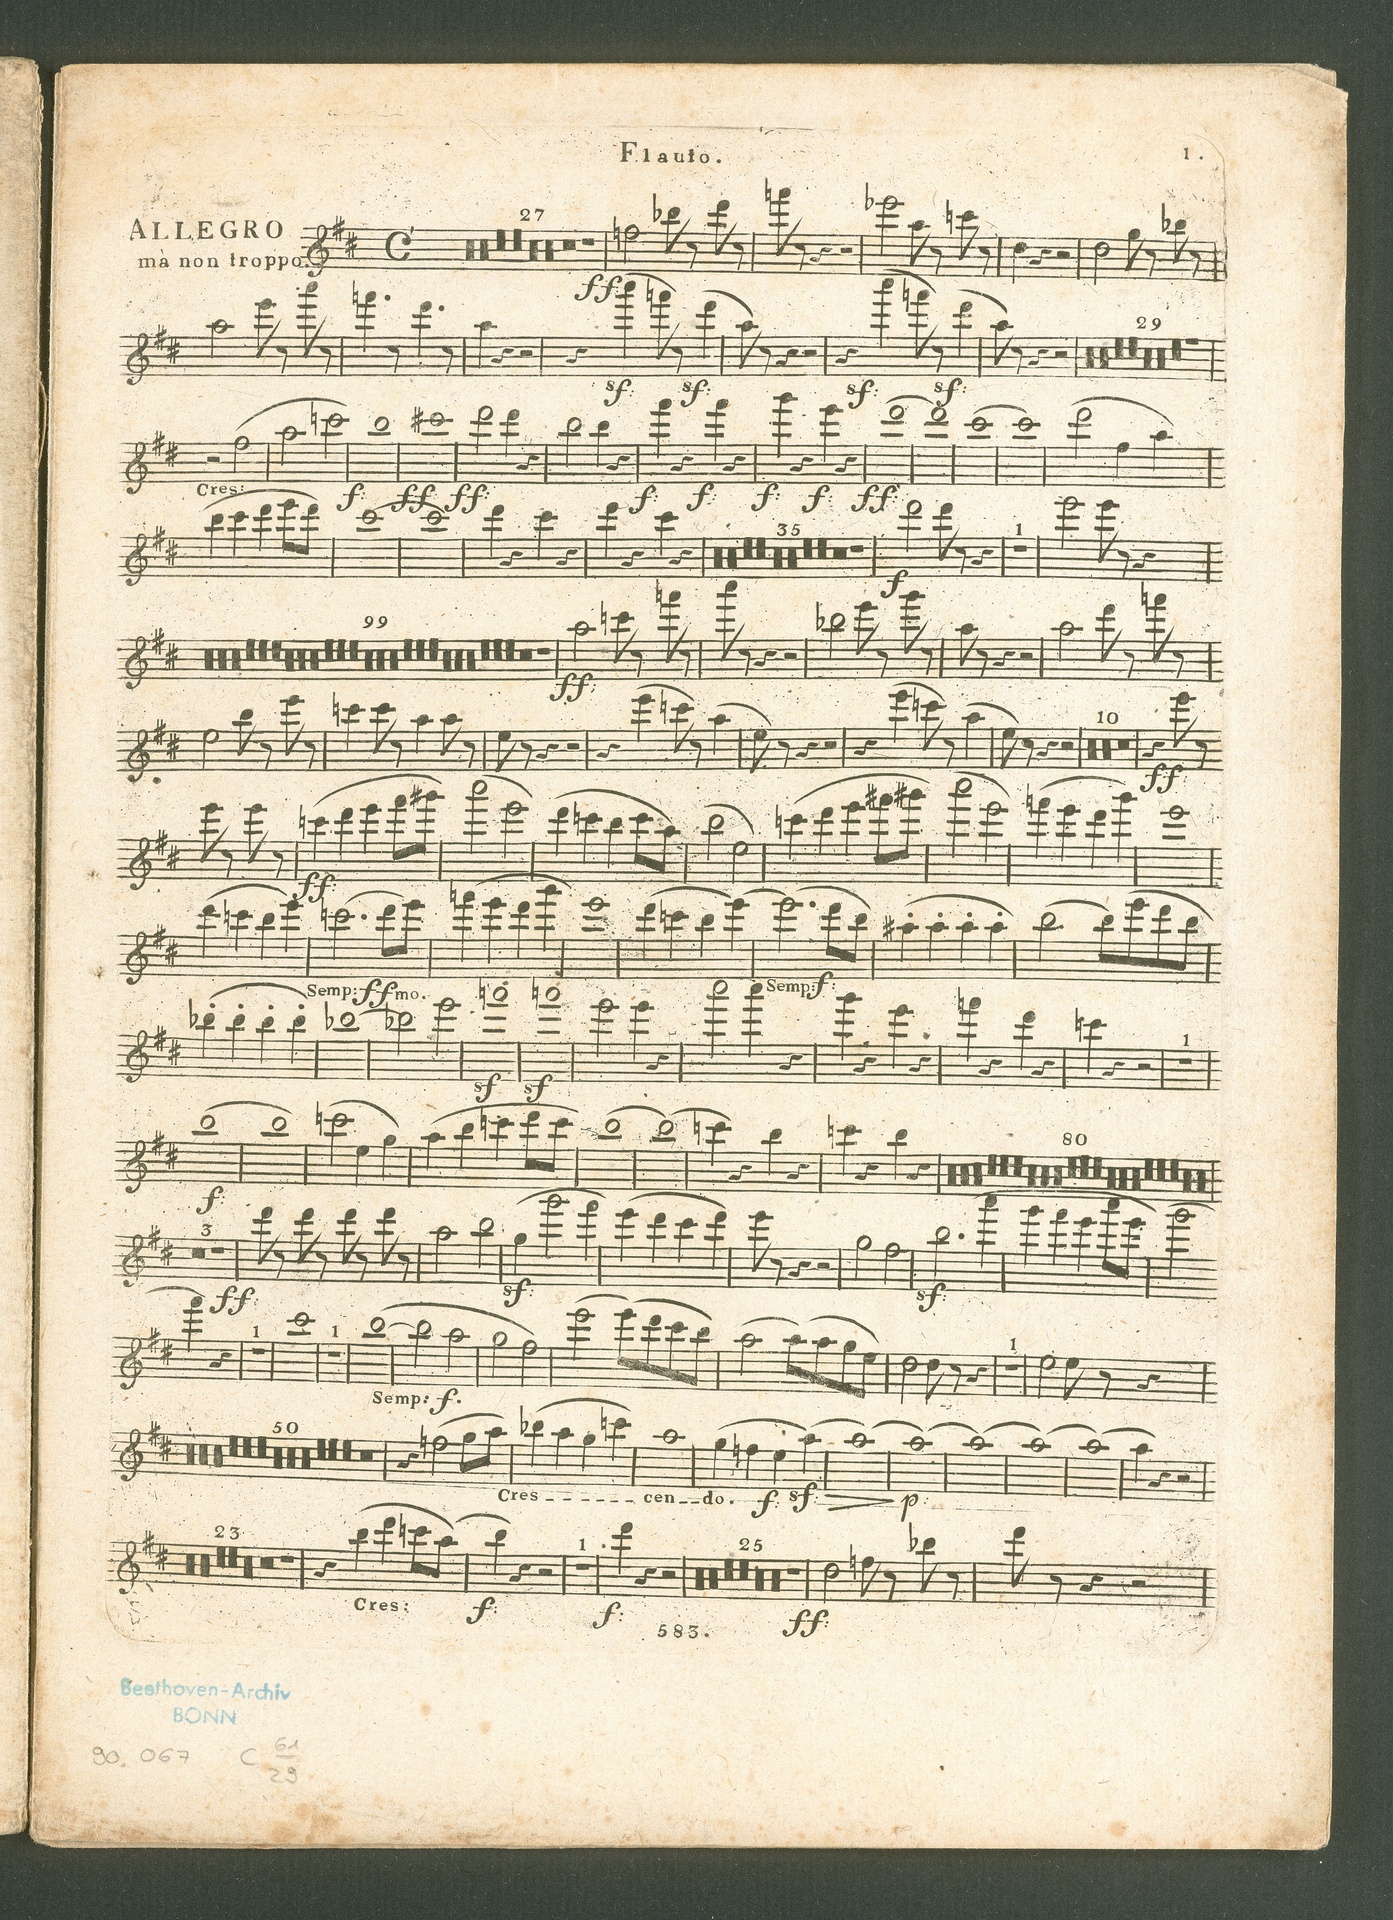 Flauto. 1.
ALLEGRO
mà non troppo.
27
ff:
29
sf: sf: sf: sf:
Cres: f: ff: ff: f: f: f: f: ff:
35 1
f
99
ff:
10
ff
ff:
Semp: ffmo. Semp: f:
sf sf 1
80
f:
3
ff: sf: sf:
1 1 1
Semp: f.
50
Cres - - - - - - cen - - do. f: sf: p:
23 1 25
Cres: f: f: ff:
583.
Beethoven-Archiv
BONN
90. 067 C 61
29